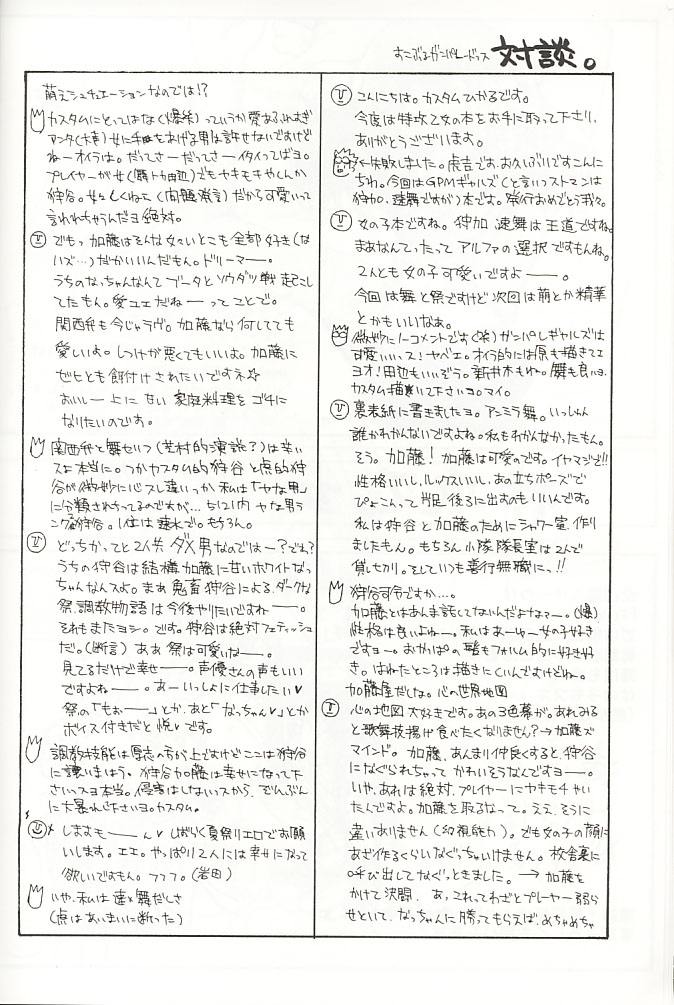 すこぶるガンパレードっス 対談。
こんにちは。カスタムひかるです。
今度は特攻乙女の本をお手に取って下さり、
ありがとうございます。
←失敗しました。虎吉です。お久しぶりですこんに
ちわ。今回はGPMギャルズ(と言いつつストマンは
狩加、速舞ですが)本です。発行おめでとう我々。
女の子本ですね。狩加 速舞は王道ですね。
まあなんてったって アルファの選択ですもんね。
2人とも女の子可愛いですよーー。
今回は舞と祭ですけど次回は萌とか精華
とかもいいなぁ。
微妙にノーコメントです(笑)ガンパレギャルズは
可愛いいっス!ヤベエ。オイラ的には原も描きてエ
ヨオ!田辺もいいぞう。新井木もね。髪も良いヨ。
カスタム描いて下さいヨ。マイ。
裏表紙に書きましたヨ。アンミラ舞。いっしゅん
誰かわかんないですよね。私もわかんなかったもん。
そう。加藤!加藤は可愛のです。イヤマジで!!
性格いいし、ルックスいいし、あの立ちポーズで
ぴょこんって片足後ろに出すのもいいんです。
私は狩谷と加藤のためにシャワー室作り
ましたもん。もちろん小隊隊長室は2人で
貸し切り。そしていつも善行無職にっ!!
狩谷司令ですか…。
加藤とはあんま話してないんだよなァー。(爆)
性格は良いよねー。私はあーゆー女の子好き
ですヨー。おかっぱの髪もフォルム的に好き好
き。はねたところは描きにくいんですけどね。
加藤屋だしな。心の世界地図
心の地図大好きです。あの3色幕が。あれみる
と歌舞伎揚げ食べたくなりません?→加藤ズ
マインド。 加藤、あんまり仲良くすると、狩谷
になぐられちゃって かわいそうなんですヨー。
いや、あれは絶対、プレイヤーにヤキモチやい
たんですよ。加藤を取るなって。ええ、そうに
違いありません(幻視能力)。でも女の子の顔に
あざ作るくらいなぐっちゃいけません。校舎裏に
呼び出してなぐっときました。→加藤を
かけて決闘。 あ、これってわざとプレーヤー弱ら
せといて、なっちゃんに勝ってもらえば、めちゃめちゃ
萌えシュチュエーションなのでは!?
カスタムにとってはな(爆笑)っていうか愛あふれすぎ
アンタ(大幸)女に手をあげる男は許せないですけど
ねーオイラは。だってさーだってさーイタイってばヨ。
プレイヤーが女でもヤキモチやくんか
狩谷。女々しくねェ(問題発言)だから可愛いって
言われちゃうんだヨ絶対。
でもっ 加藤はそんな女々しいとこも全部好き(な
ハズ…)だからいいんだもん。ドリーマー。
うちのなっちゃんなんてブータとソウダツ戦起こし
てたもん。愛ユエだねーってことで。
関西弁も今じゃラヴ。加藤なら何してても
愛しいよ。しつけが悪くてもいいよ。加藤に
ゼヒとも餌付けされたいですネ☆
おいしー上に安い家庭料理をゴチに
なりたいのですぁ。
関西弁と舞せいつ(芝村的演説?)は辛い
スよ本当に。つかカスタム的狩谷と虎的狩
谷が微妙に心スレ違いっつか私は「ヤな男」
に分類されちってるのですが…。うち1で内ヤな男ラ
ンク2狩谷。1位は速水で。もちろん。
どっちかってと2人共ダメ男なのではー?でれ?
うちの狩谷は結構加藤に甘いホワイトなっ
ちゃんなんスよ。まあ鬼畜狩谷によるダークな
祭調教物語は今後やりたいですねーー。
それもまたヨシ。です。狩谷は絶対フェティッシュ
だ。(断言)ああ祭は可愛いねー。
見てるだけで幸せーー。声優さんの声もいい
ですよねーー。あーいっしょに仕事したい♥
祭の「もぉーー」とか、あと「なっちゃん♥」とか
ボイス付きだと悦♥です。
調教技能は厚志の方が上ですけどここは狩谷
に譲りましょう。狩谷加藤は幸せになって下
さいっスヨ本当。侵害はしないっスから、ぞんぶん
に大暴れ下さいヨ。カスタム。
しますもーーん♥しばらく夏祭りエロでお願
いします。エエ。やっぱり2人には幸せになって
欲しいですもん。フフフ。(岩田)
いや、私は速×舞だしさ
(虎はあいまいに断った)